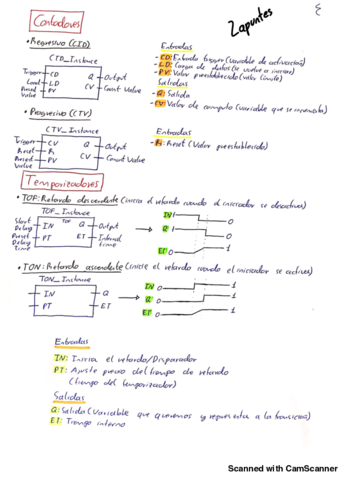 Zapuntes
Contadores
• Regresivo (CTD)
CTD_Instance
Trigger CD Q Output
Count LD CV Count Value
Preset Value PV
Entradas
- CD: Entrada trigger (variable de activación)
- LD: Carga de datos (se vuelve a iniciar)
- PV: Valor preestablecido (valor límite)
Salidas
- Q: Salida
- CV: Valor de computo (variable que se incrementa)
• Progresivo (CTV)
CTV_Instance
Trigger CV Q Output
Reset R CV Count Value
Preset Value PV
Entradas
- R: Reset (Valor preestablecido)
Temporizadores
• TOF: Retardo descendente (inicia el retardo cuando el iniciador se desactiva)
TOF_Instance
TOF
Start Delay IN Q Output
Preset Delay Time PT ET Interval time
IN 1 0
Q 1 0
ET 0 1
• TON: Retardo ascendente (inicie el retardo cuando el iniciador se activa)
TON_Instance
IN Q
PT ET
IN 0 1
Q 0 1
ET 0 1
Entradas
IN: Inicia el retardo/Disparador
PT: Ajuste previo del tiempo de retardo
(tiempo del temporizador)
Salidas
Q: Salida (Variable que queremos y representa a la transición)
ET: Tiempo interno
Scanned with CamScanner